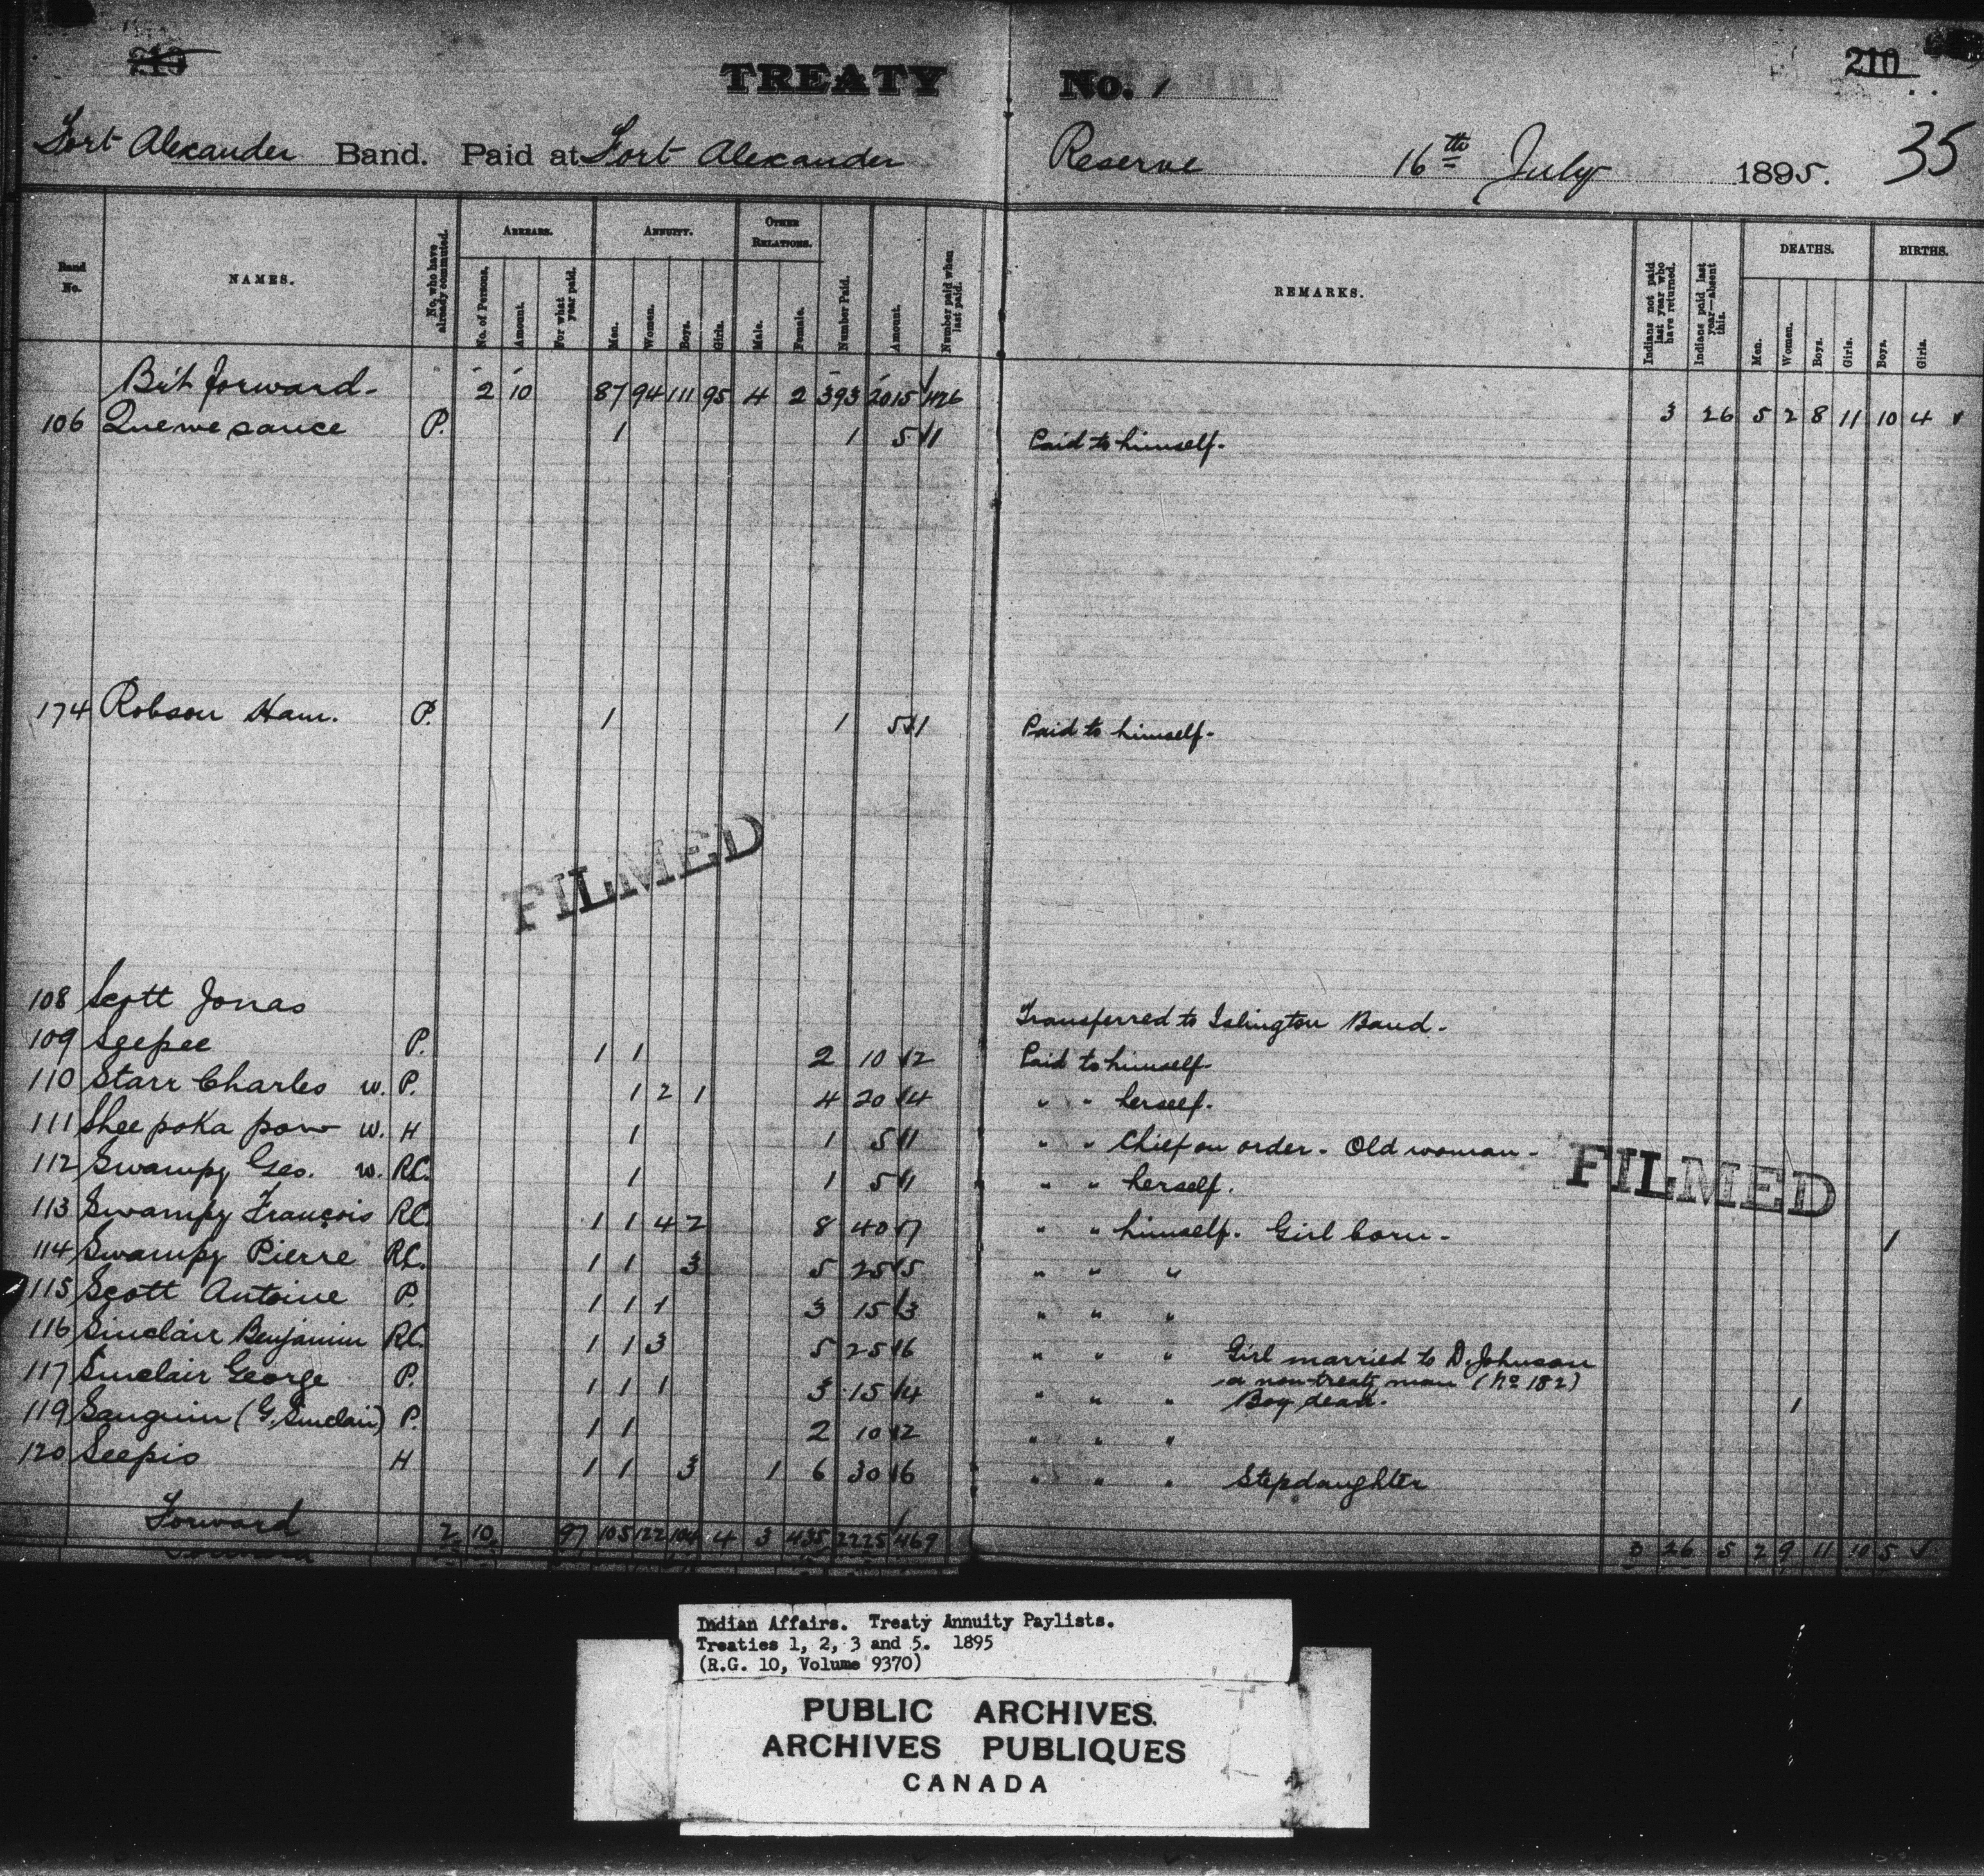 TREATY No. 1
210
Fort Alexander Band. Paid at Fort Alexander Reserve 16th July 1895. 35
Band No.
NAMES.
No. who have already commuted.
ARREARS.
No. of Persons.
Amount.
For what year paid.
ANNUITY.
Men.
Women.
Boys.
Girls.
OTHER RELATIONS.
Male.
Female.
Number Paid.
Amount.
Number paid when last paid.
REMARKS.
Indians not paid last year who have returned.
Indians paid last year—absent this.
DEATHS.
Men.
Women.
Boys.
Girls.
BIRTHS.
Boys.
Girls.
Brt forward- 2 10 87 94 111 95 4 2 393 2015 426 3 26 5 2 8 11 10 4
106 Quewesance P. 1 1 5 1 Paid to himself.
174 Robson Ham. P. 1 1 5 1 Paid to himself.
FILMED
108 Scott Jonas Transferred to Islington Band.
109 Seepee P. 1 1 2 10 2 Paid to himself
110 Starr Charles w. P. 1 2 1 4 20 4 " " herself.
111 Sheepokapow w. H 1 1 5 1 " " Chief on order. Old woman.
112 Swampy Geo. w. R.C. 1 1 5 1 " " herself.
113 Swampy François R.C. 1 1 4 2 8 40 7 " " himself. Girl born. 1
114 Swampy Pierre R.C. 1 1 3 5 25 5 " " "
115 Scott Antoine P. 1 1 1 3 15 3 " " "
116 Sinclair Benjamin R.C. 1 1 3 5 25 6 " " " Girl married to D. Johnson
a non-treaty man (No 182)
117 Sinclair George P. 1 1 1 3 15 4 " " " Boy dead. 1
119 Sanguin (G. Sinclair) P. 1 1 2 10 2 " " "
120 Seepis H 1 1 3 1 6 30 6 " " " Stepdaughter
FILMED
Forward 2 10 97 105 122 104 4 3 435 2225 469 3 26 5 2 9 11 10 5
Indian Affairs. Treaty Annuity Paylists.
Treaties 1, 2, 3 and 5. 1895
(R.G. 10, Volume 9370)
PUBLIC ARCHIVES
ARCHIVES PUBLIQUES
CANADA